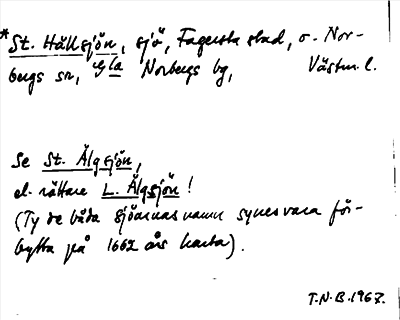 *St. Hällsjön, sjö, Fagersta stad, o. Nor-
bergs sn, Gla Norbergs bg, Västm. l.
Se St. Älgsjön,
el. rättare L. Älgsjön!
(Ty de båda sjöarnas namn synes vara för-
bytta på 1662 års karta).
T.N.B. 1967.